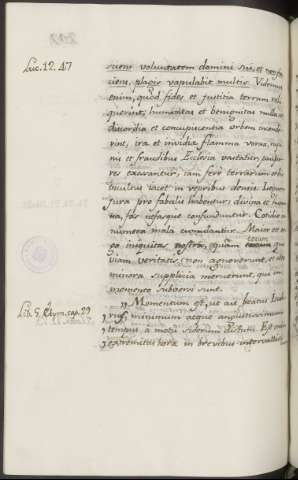 Luc. 12. 47
suens voluntatem domini sui, et non fa
ciens, plagis vapulabit multis. Videmus
enim, quod fides et justitia terram reli
querint, humanitas et benignitas nulla
discordia et concupiscentia orbem
rint, ira et invidia flamma vorax,
ni et fraudibus Ecclesia vastatur, paupe
res exavantur, iam fere terrarum orbis
jacet in vepribus densis. Legum
jura pro fabulis habentur, divina et huma
na, fas nefasque confunduntur. Cotidie
numera mala cumulantur. Maior est
go iniquitas nostra, quam eorum, qui
viam veritatis non agnoverunt, et
minora supplicia meruerunt, qui in
momento subversi sunt.
Momentum est, ut ait beatus Isido
Lib. 5. Etym. cap. 29
rus, minimum atque angustissimum
tempus, a motu siderum dictum. Est enim
extremitas horæ in brevibus intervallis